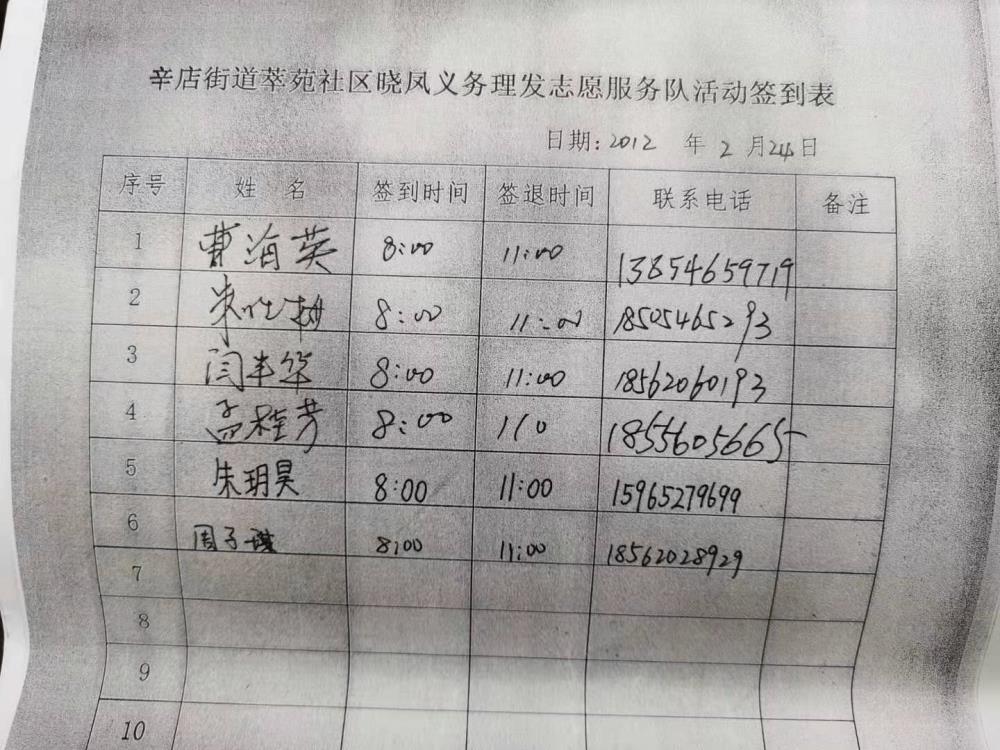 辛店街道萃苑社区晓凤义务理发志愿服务队活动签到表
日期:2012 年 2 月24日
序号 姓 名 签到时间 签退时间 联系电话 备注
1 曹海英 8:00 11:00 13854659719
2 8:00 11:00 18505465293
3 闫丰华 8:00 11:00 18562060193
4 孟桂芳 8:00 110 18556056665
5 朱玥昊 8:00 11:00 15965279699
6 周子琪 8:00 11:00 18562028929
7
8
9
10